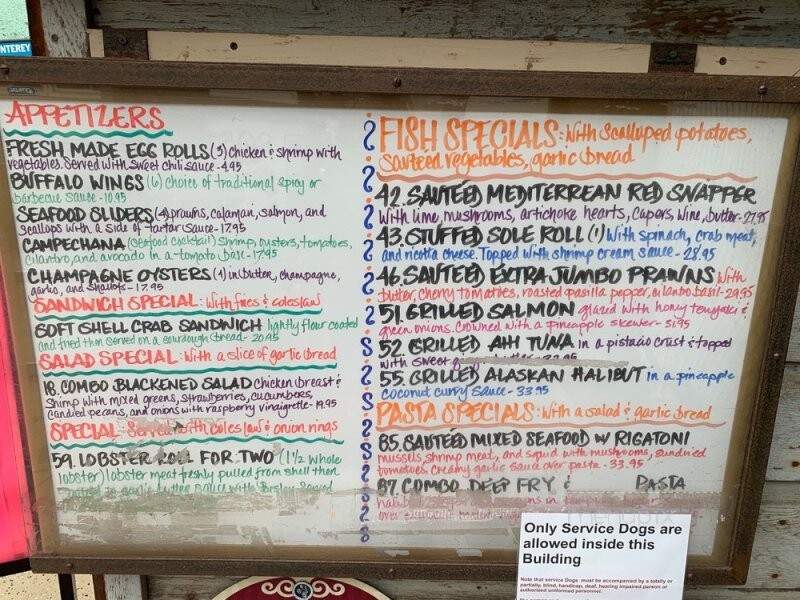 NTEREY
APPETIZERS
FRESH MADE EGG ROLLS (3) chicken & shrimp with
vegetables. Served with sweet chili sauce - 4.95
BUFFALO WINGS (6) choice of traditional spicy or
barbecue sauce - 10.95
SEAFOOD SLIDERS (4) prawns, calamari, salmon, and
scallops with a side of tartar sauce - 17.95
CAMPECHANA (seafood cocktail) shrimp, oysters, tomatoes,
cilantro, and avocado in a tomato base - 17.95
CHAMPAGNE OYSTERS (4) in butter, champagne,
garlic, and shallots - 17.95
SANDWICH SPECIAL: With fries & coleslaw
SOFT SHELL CRAB SANDWICH lightly flour coated
and fried then served on a sourdough bread - 20.95
SALAD SPECIAL: With a slice of garlic bread
18. COMBO BLACKENED SALAD chicken breast &
shrimp with mixed greens, strawberries, cucumbers,
candied pecans, and onions with raspberry vinaigrette - 19.95
SPECIAL: Served with coleslaw & onion rings
59. LOBSTER ROLL FOR TWO (1½ whole
lobster) lobster meat freshly pulled from shell then
garlic butter sauce with
FISH SPECIALS: With scalloped potatoes,
sauteed vegetables, garlic bread
42. SAUTEED MEDITERREAN RED SNAPPER
with lime, mushrooms, artichoke hearts, capers, wine, butter - 27.95
43. STUFFED SOLE ROLL (1) With spinach, crab meat,
and ricotta cheese. Topped with shrimp cream sauce - 28.95
46. SAUTEED EXTRA JUMBO PRAWNS With
butter, cherry tomatoes, roasted pasilla pepper, cilantro basil - 29.95
51. GRILLED SALMON glazed with honey teriyaki &
green onions. Crowned with a pineapple skewer - 31.95
52. GRILLED AHI TUNA in a pistacio crust & topped
with sweet
55. GRILLED ALASKAN HALIBUT in a pineapple
coconut curry sauce - 33.95
PASTA SPECIALS: With a salad & garlic bread
85. SAUTEED MIXED SEAFOOD W RIGATONI
mussels, shrimp meat, and squid with mushrooms, sundried
tomatoes creamy garlic sauce over pasta - 33.95
87. COMBO DEEP FRY & PASTA
Only Service Dogs are
allowed inside this
Building
Note that service Dogs must be accompanied by a totally or
partially, blind, handicap, deaf, hearing impaired person or
authorized uniformed personnel.